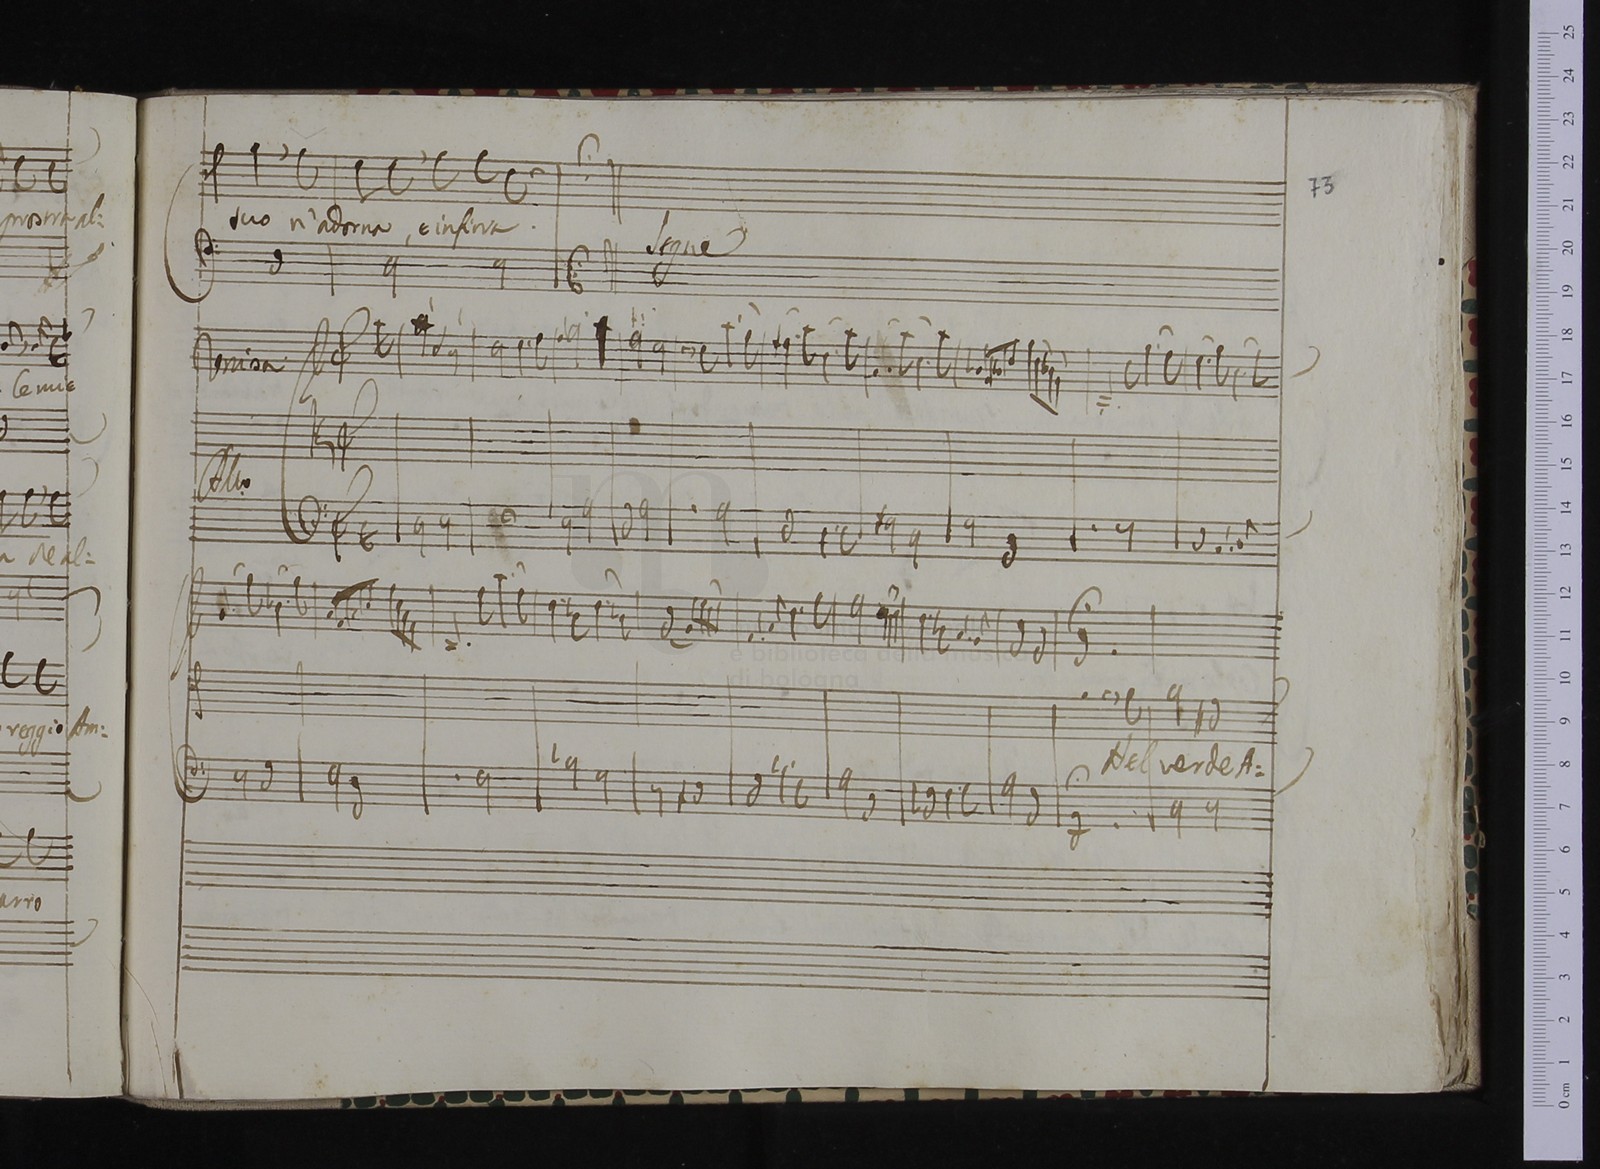 73
suo n'adorna, e infiora.
Segue
Unisn.
Allo
Nel verde A=
prostra al=
Le mie
a de al=
reggio Am=
arro
e biblioteca della musica
di bologna
0 cm 1 2 3 4 5 6 7 8 9 10 11 12 13 14 15 16 17 18 19 20 21 22 23 24 25